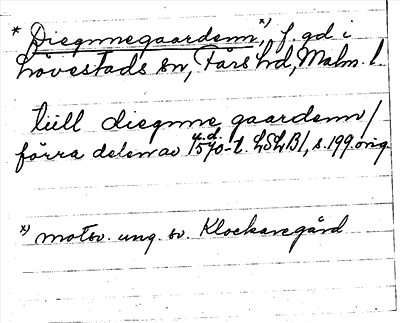 * Diegnnegaardenn,*) f. gd i
Lövestads sn, Färs hd, Malm. l.
tiill diegnne gaardenn/
förra delen av u.d. 1570-t. LSLB1, s. 199. orig.
*) motsv. ung. sv. Klockaregård